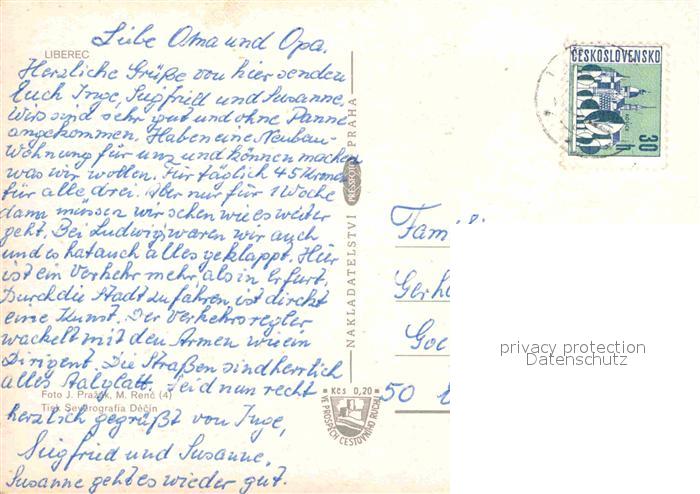 Liebe Oma und Opa.
LIBEREC
Herzliche Grüße von hier senden
Euch Inge, Siegfried und Susanne.
Wir sind sehr gut und ohne Panne
angekommen. Haben eine Neubau-
Wohnung für uns und können machen
was wir wollen. Für täglich 45 Kronen
für alle drei. Aber nur für 1 Woche
dann müssen wir sehen wie es weiter
geht. Bei Ludwig waren wir auch
und es hat auch alles geklappt. Hier
ist ein Verkehr mehr als in Erfurt.
Durch die Stadt zu fahren ist direkt
eine Kunst. Der Verkehrsregler
wackelt mit den Armen wie ein
Dirigent. Die Straßen sind herrlich
alles Aalglatt. Seid nun recht
Foto J. Pražák, M. Renč (4)
herzlich gegrüßt von Inge,
Tisk Severografia Děčín
Siegfried und Susanne.
Susanne geht es wieder gut.
NAKLADATELSTVÍ PRESSFOTO PRAHA
Kčs 0,20
VE PROSPĚCH CESTOVNÍHO RUCHU
ČESKOSLOVENSKO
30 h
Fam
Gerh
50
privacy protection
Datenschutz